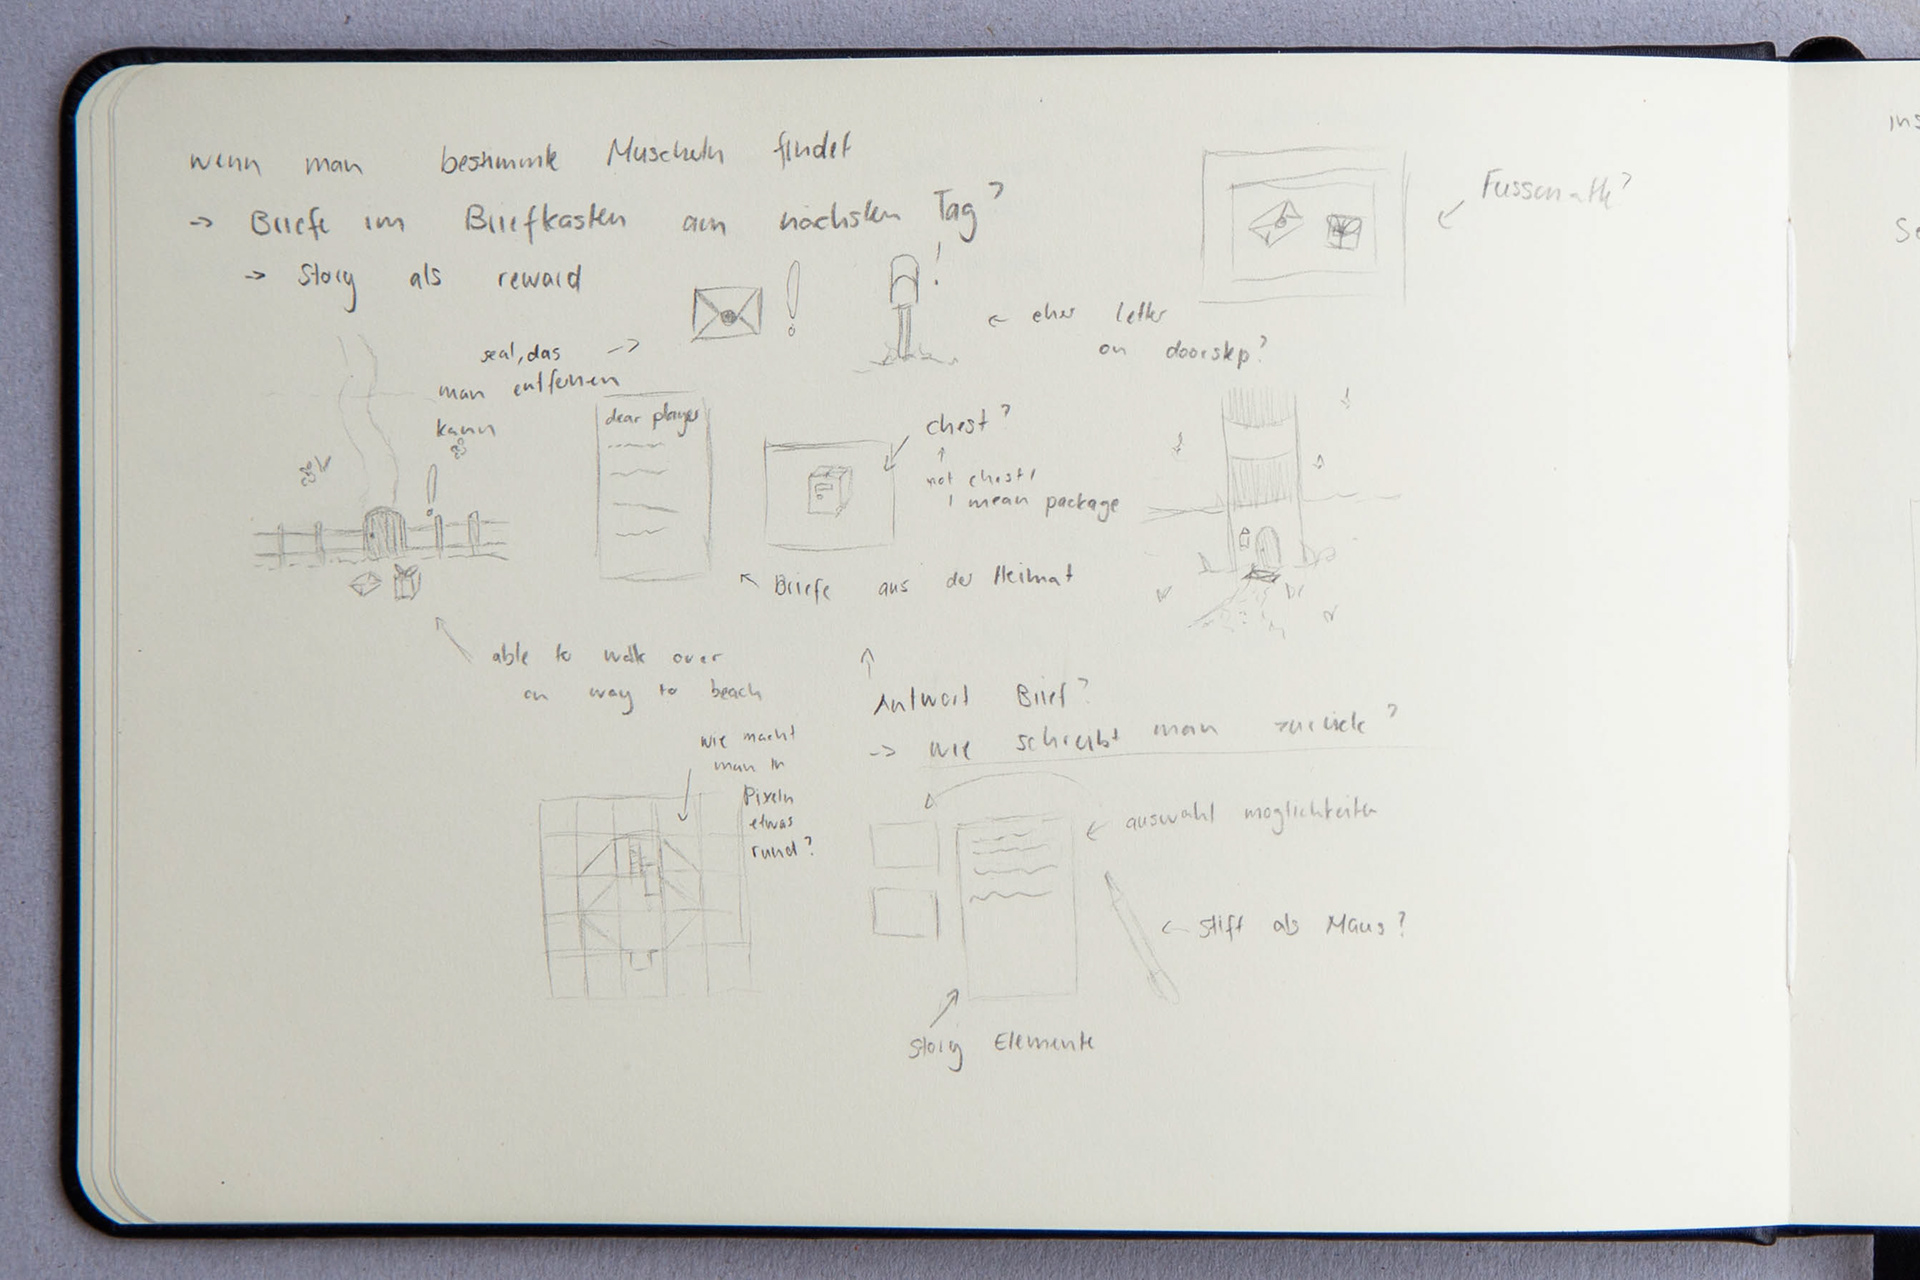 wenn man bestimmte Muscheln findet
→ Briefe im Briefkasten am nächsten Tag?
→ Story als reward
Fussmatte?
!
!
← eher letter
on doorstep?
seal, das →
man entfernen
kann
!
dear player
chest?
↑
not chest,
I mean package
Briefe aus der Heimat
able to walk over
on way to beach
Antwort Brief?
→ wie schreibt man zurück?
wie macht
man in
Pixeln
etwas
rund?
← auswahl möglichkeiten
← Stift als Maus?
Story Elemente
ins
Se